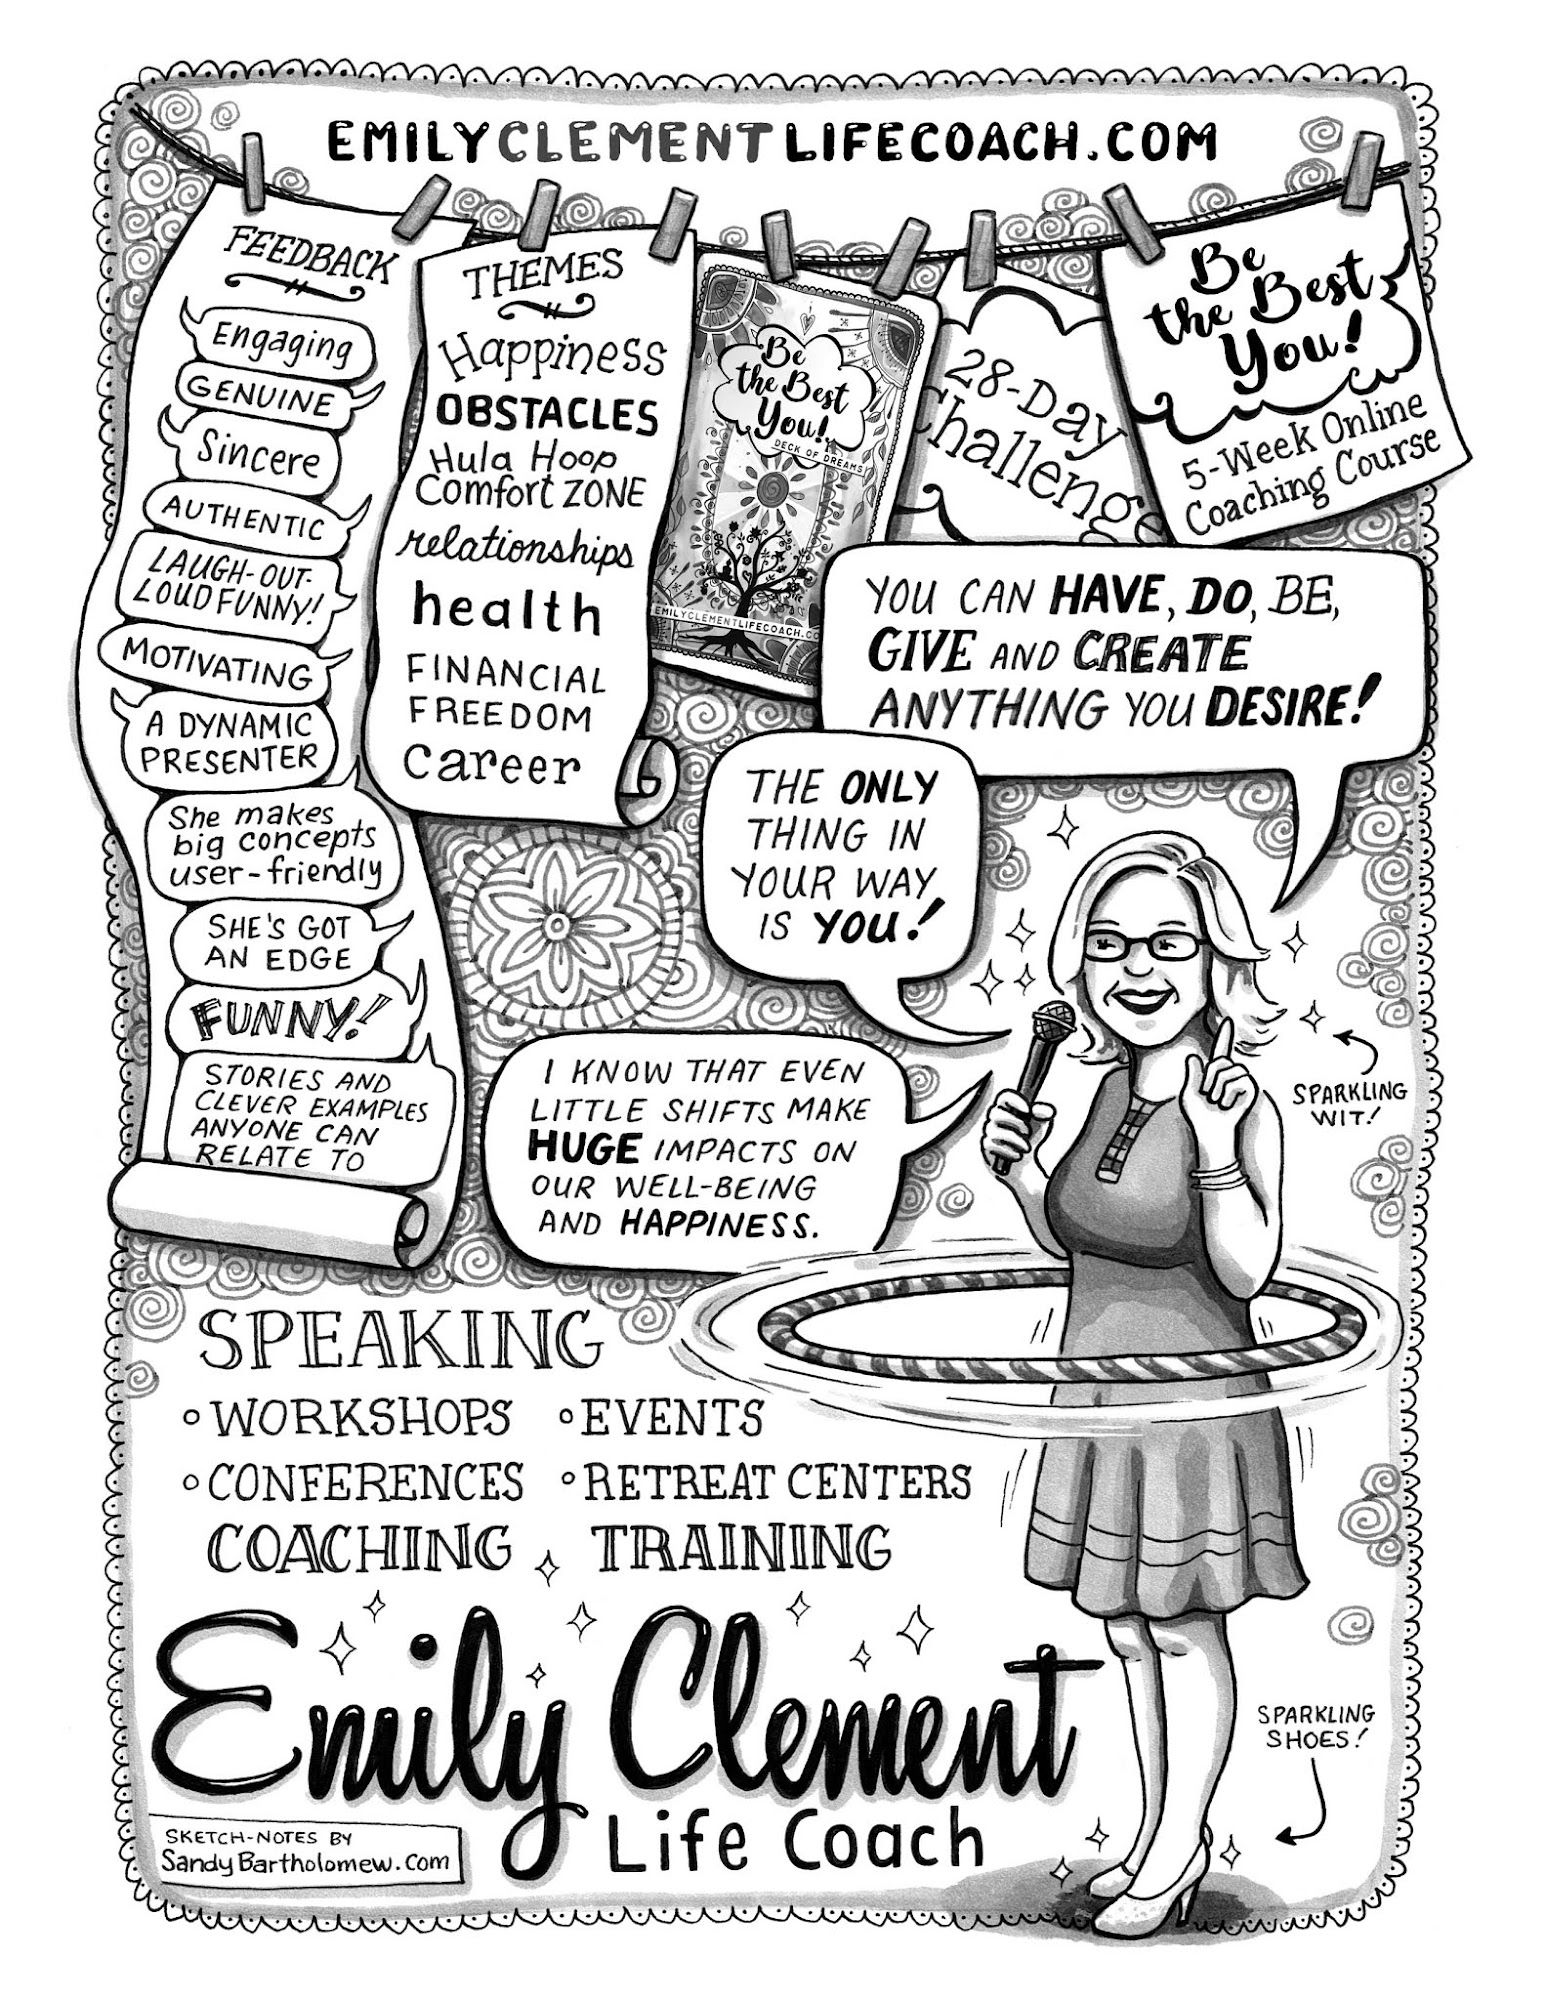 EMILYCLEMENTLIFECOACH.COM
FEEDBACK
Engaging
GENUINE
Sincere
AUTHENTIC
LAUGH-OUT-
LOUD FUNNY!
MOTIVATING
A DYNAMIC
PRESENTER
She makes
big concepts
user-friendly
SHE'S GOT
AN EDGE
FUNNY!
STORIES AND
CLEVER EXAMPLES
ANYONE CAN
RELATE TO
THEMES
Happiness
OBSTACLES
Hula Hoop
Comfort ZONE
relationships
health
FINANCIAL
FREEDOM
career
Be
the Best
You!
DECK OF DREAMS
EMILYCLEMENTLIFECOACH.CO
28-Day
Challenge
Be
the Best
You!
5-Week Online
Coaching Course
YOU CAN HAVE, DO, BE,
GIVE AND CREATE
ANYTHING YOU DESIRE!
THE ONLY
THING IN
YOUR WAY
IS YOU!
I KNOW THAT EVEN
LITTLE SHIFTS MAKE
HUGE IMPACTS ON
OUR WELL-BEING
AND HAPPINESS.
SPARKLING
WIT!
SPEAKING
◦ WORKSHOPS ◦ EVENTS
◦ CONFERENCES ◦ RETREAT CENTERS
COACHING TRAINING
Emily Clement
Life Coach
SPARKLING
SHOES!
SKETCH-NOTES BY
SandyBartholomew.com